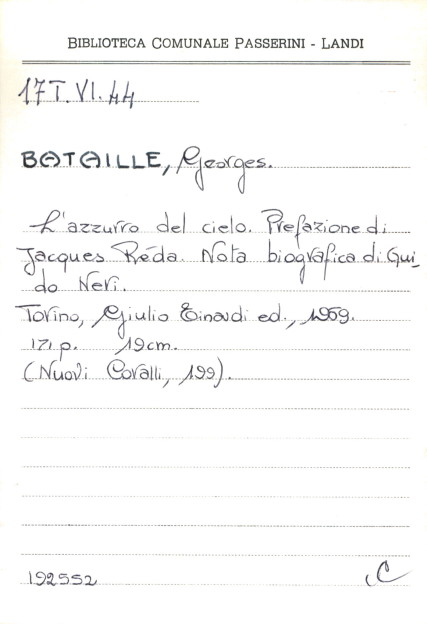 BIBLIOTECA COMUNALE PASSERINI - LANDI
17 T. VI. 44
BATAILLE, Georges.
L'azzurro del cielo. Prefazione di
Jacques Réda. Nota biografica di Gui_
do Neri.
Torino, Giulio Einaudi ed., 1969.
171 p. 19 cm.
(Nuovi Coralli, 199).
192552
C